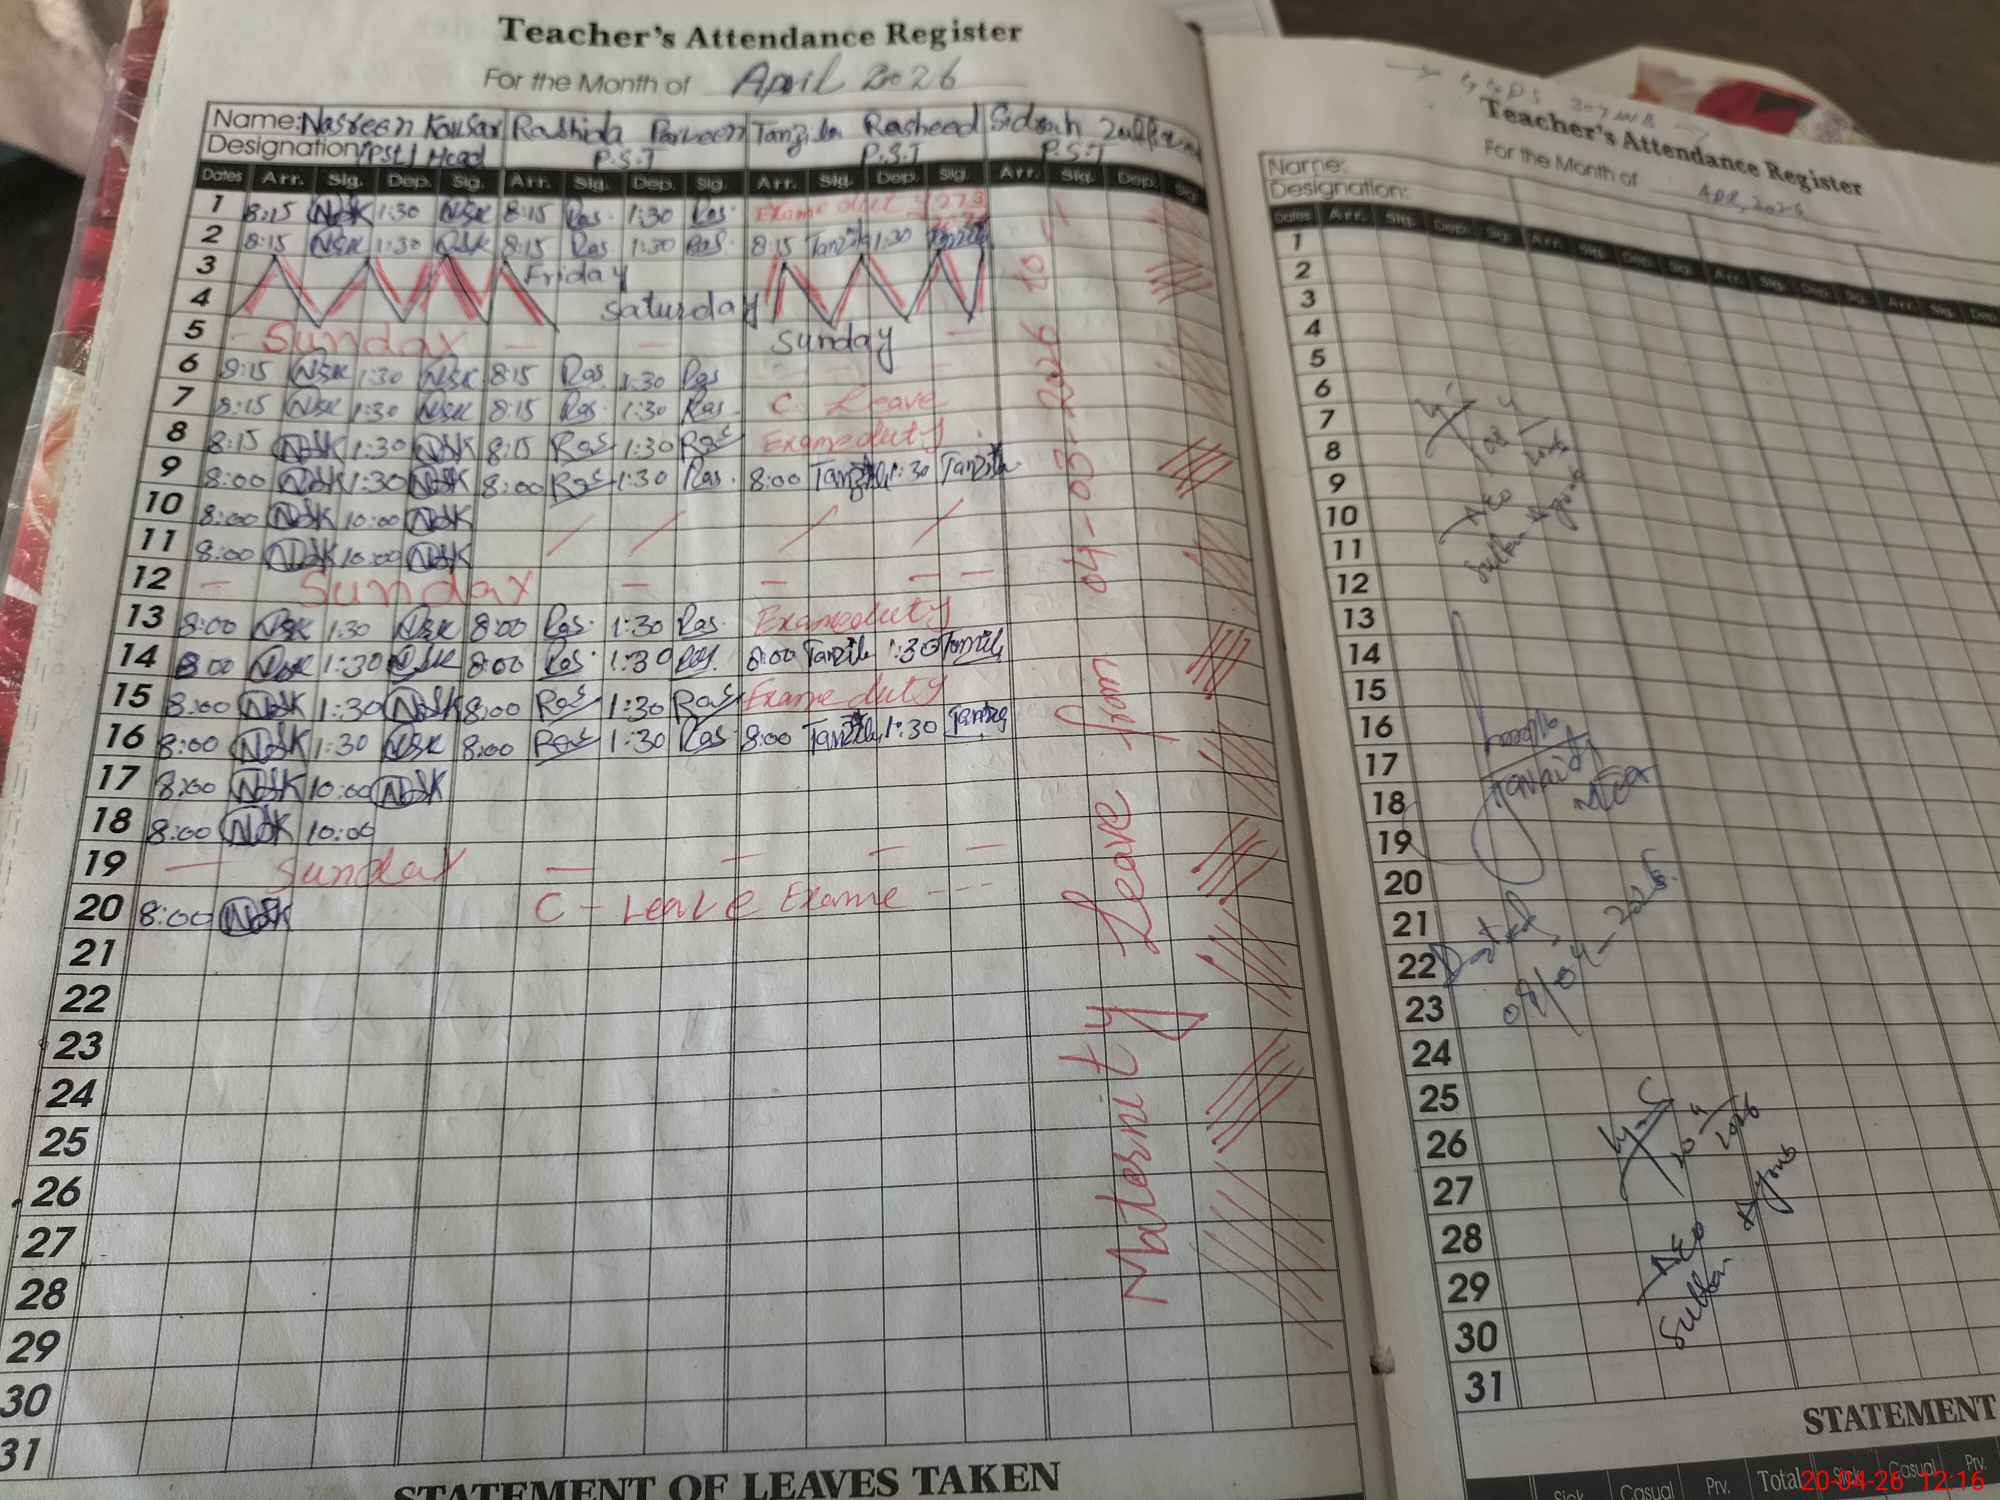 Teacher's Attendance Register
For the Month of April 2026
Name: Nasreen Kausar Rashida Parveen Tanzila Rasheed Sidrah
Designation: PST / Head P.S.T P.S.T P.S.T
Dates Arr. Sig. Dep. Sig. Arr. Sig. Dep. Sig. Arr. Sig. Dep. Sig. Arr. Sig. Dep. Sig
1 8:15 NSK 1:30 NSK 8:15 Ras. 1:30 Ras. Exame duty
2 8:15 NSK 1:30 NSK 8:15 Ras 1:30 Ras. 8:15 Tanzila 1:30 Tanzila
3 Friday
4 Saturday
5 - Sunday - - Sunday -
6 8:15 NSK 1:30 NSK 8:15 Ras 1:30 Ras
7 8:15 NSK 1:30 NSK 8:15 Ras. 1:30 Ras. C. Leave
8 8:15 NSK 1:30 NSK 8:15 Ras 1:30 Ras Exameduty
9 8:00 NSK 1:30 NSK 8:00 Ras 1:30 Ras. 8:00 Tanzila 1:30 Tanzila
10 8:00 NSK 10:00 NSK
11 8:00 NSK 10:00 NSK
12 - Sunday - - - -
13 8:00 NSK 1:30 NSK 8:00 Ras. 1:30 Ras. Exameduty
14 8:00 NSK 1:30 NSK 8:00 Ras. 1:30 Ras. 8:00 Tanzila 1:30 Tanzila
15 8:00 NSK 1:30 NSK 8:00 Ras 1:30 Ras Exame duty
16 8:00 NSK 1:30 NSK 8:00 Ras 1:30 Ras 8:00 Tanzila 1:30 Tanzila
17 8:00 NSK 10:00 NSK
18 8:00 NSK 10:00
19 - Sunday - - - -
20 8:00 NSK C - Leave Exame ---
21
22
23
24
25
26
27
28
29
30
31
Maternity Leave from 04-03-2026 to
STATEMENT OF LEAVES TAKEN
Teacher's Attendance Register
For the Month of Apr, 2026
Name:
Designation:
Dates Arr. Sig. Dep. Sig. Arr. Sig. Dep. Sig. Arr. Sig. Dep. Sig. Arr. Sig. Dep.
1
2
3
4
5
6
7
8
9
10
11
12
13
14
15
16
17
18
19
20
21
22
23
24
25
26
27
28
29
30
31
AEO
Sultan Ayoub
Dated,
08/04-2026.
20-4-2026
AEO
Sultan Ayoub
STATEMENT
Sick Casual Prv. Total Sick Casual Prv.
20-04-26 12:16